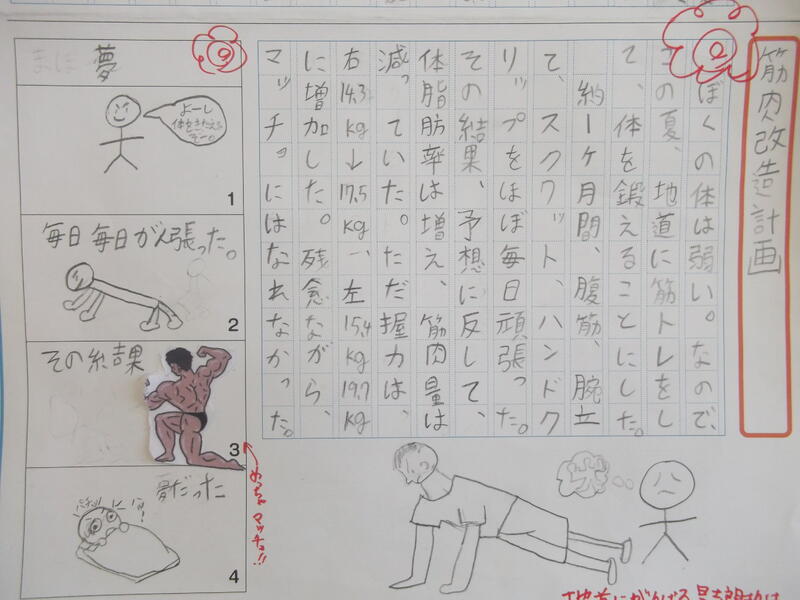 筋肉改造計画
ぼくの体は弱い。なので、
この夏、地道に筋トレをし
て、体を鍛えることにした。
約一ケ月間、腹筋、腕立
て、スクワット、ハンドク
リップをほぼ毎日頑張った。
その結果、予想に反して、
体脂肪率は増え、筋肉量は
減っていた。ただ握力は、
右14.3kg↓17.5kg、左15.4kg19.7kg
に増加した。残念ながら、
マッチョにはなれなかった。
夢
よーし
体をきたえる
ぞー。
1
毎日毎日がん張った。
2
その結果
3
めっちゃマッチョ!!
夢だった
4
地道にがんばる